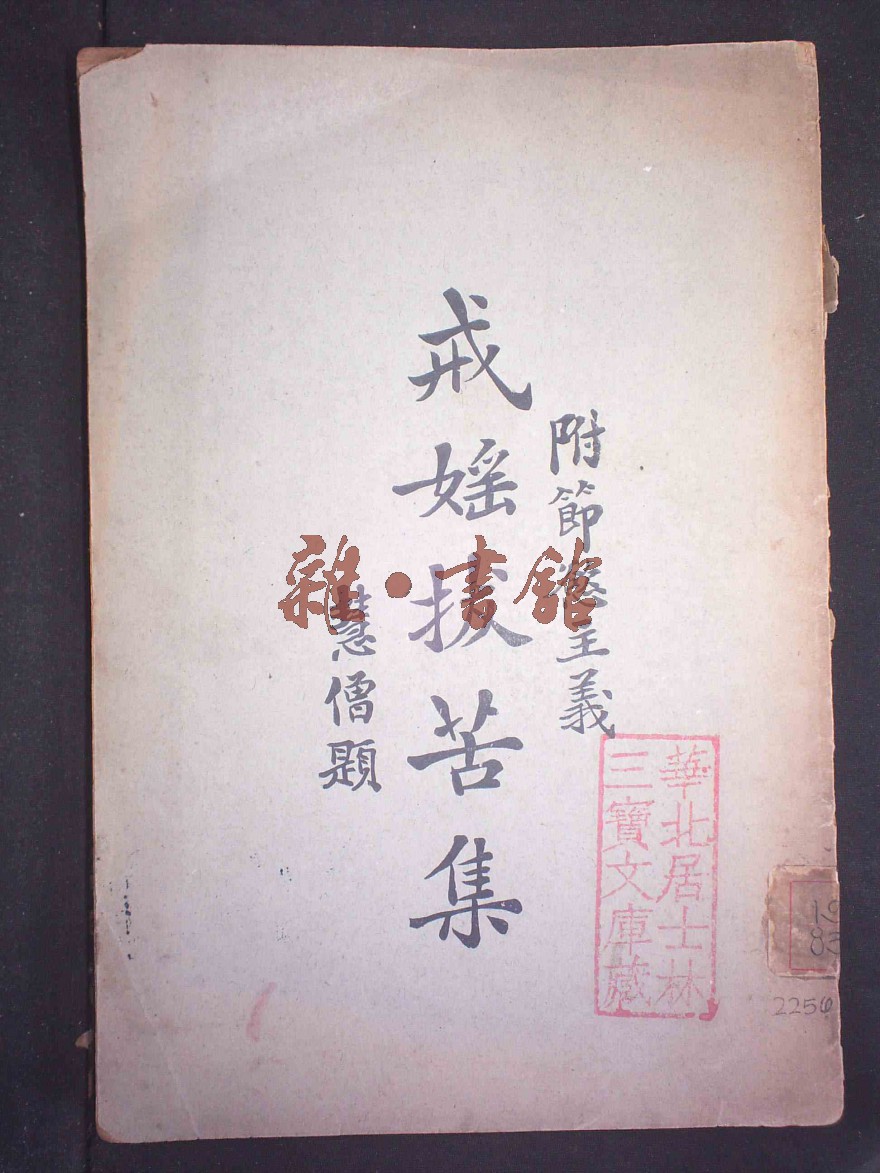 附節慾主義
戒婬拔苦集
慧僧題
雜·書館
華北居士林
三寶文庫藏
19
83
2256